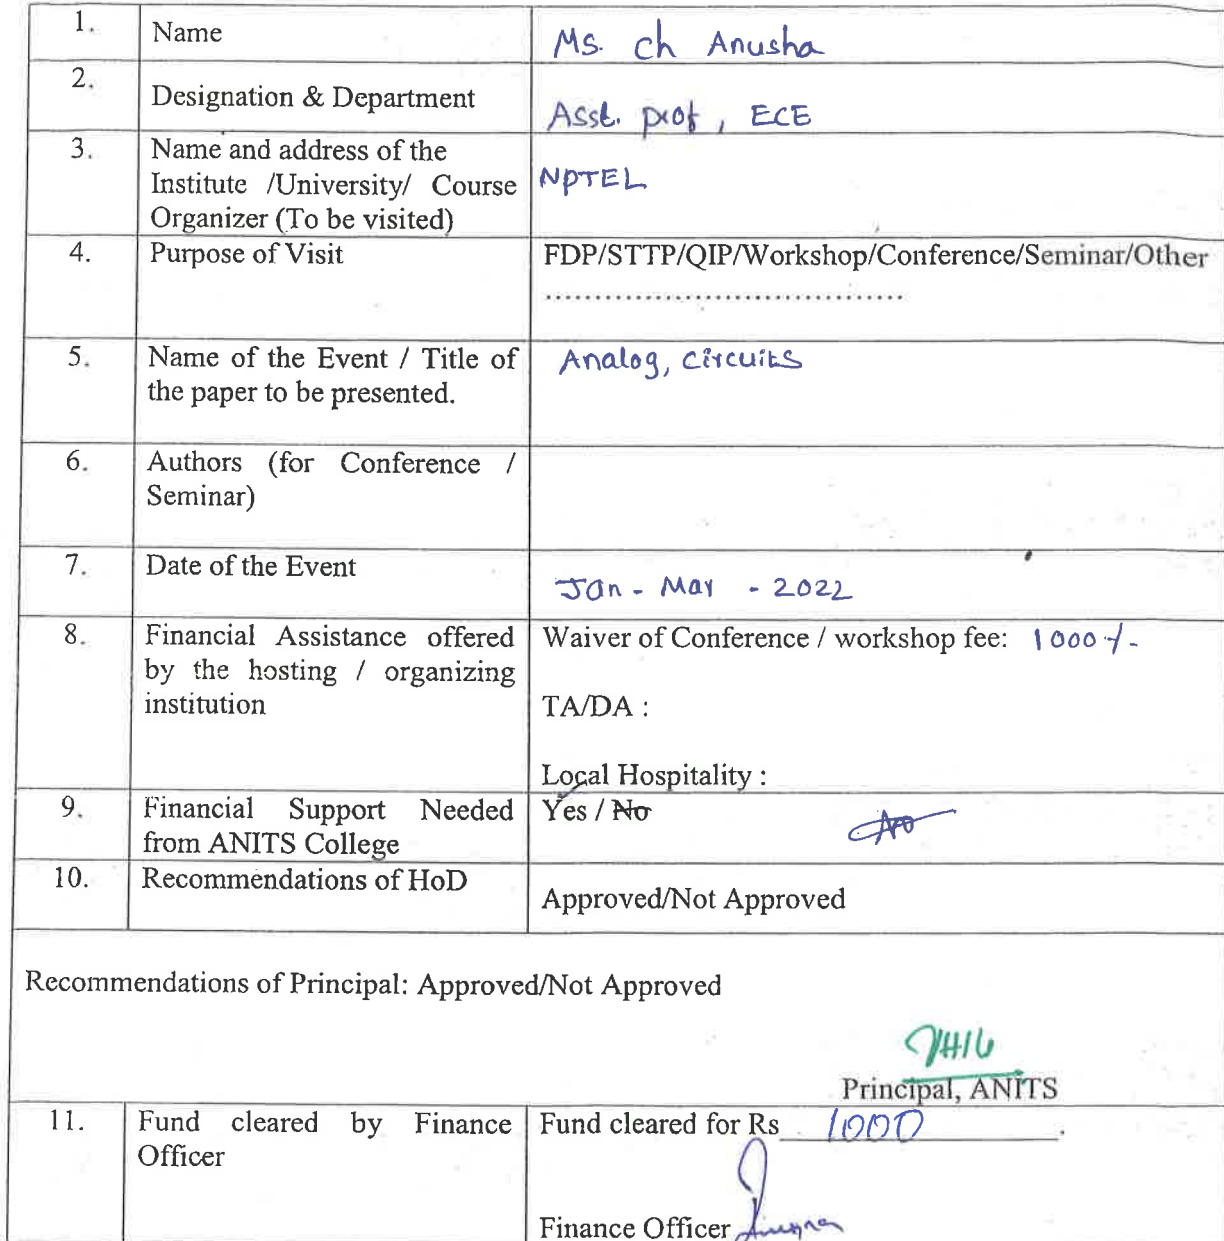 1. Name Ms. Ch Anusha
2. Designation & Department Asst. prof, ECE
3. Name and address of the
Institute /University/ Course NPTEL
Organizer (To be visited)
4. Purpose of Visit FDP/STTP/QIP/Workshop/Conference/Seminar/Other
....................................
5. Name of the Event / Title of Analog, circuits
the paper to be presented.
6. Authors (for Conference /
Seminar)
7. Date of the Event Jan - May - 2022
8. Financial Assistance offered Waiver of Conference / workshop fee: 1000/-
by the hosting / organizing
institution TA/DA :
Local Hospitality :
9. Financial Support Needed Yes / No
from ANITS College
10. Recommendations of HoD
Approved/Not Approved
Recommendations of Principal: Approved/Not Approved
Principal, ANITS
11. Fund cleared by Finance Fund cleared for Rs 1000.
Officer
Finance Officer